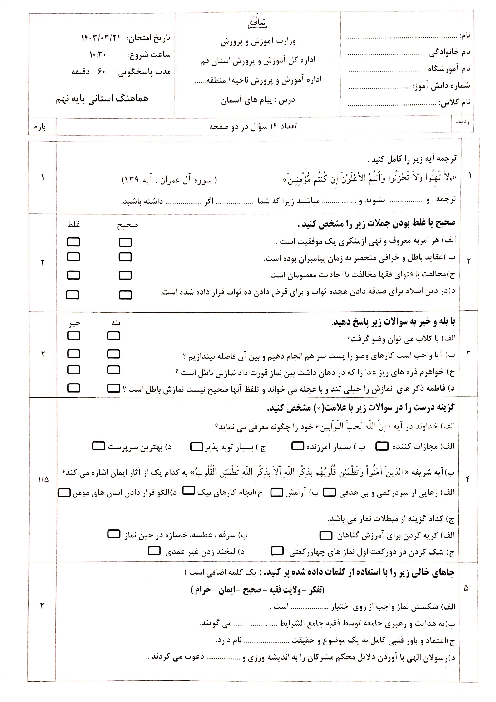 بسمه تعالی
نام:
نام خانوادگی
نام آموزشگاه
شماره دانش آموز:
نام کلاس:
وزارت آموزش و پرورش
اداره کل آموزش و پرورش استان قم
اداره آموزش و پرورش ناحیه/ منطقه......
درس : پیام های آسمان
تاریخ امتحان: ۱۴۰۳/۰۳/۲۱
ساعت شروع: ۱۰:۳۰
مدت پاسخگویی ۶۰ دقیقه
هماهنگ استانی پایه نهم
ردیف
تعداد ۱۴ سؤال در دو صفحه
بارم
۱
ترجمه آیه زیر را کامل کنید .
«وَلا تَهِنُوا وَلا تَحْزَنُوا وَأَنْتُمُ الْأَعْلَوْنَ إِنْ كُنْتُمْ مُؤْمِنِينَ» ( سوره آل عمران ، آیه ۱۳۹)
ترجمه و ............ نشوید و ............ مباشید زیرا که شما ............ اگر ............ داشته باشید.
۱
۲
صحیح یا غلط بودن جملات زیر را مشخص کنید .
صحیح غلط
الف) هر امر به معروف و نهی از منکری یک موفقیت است .
ب) عقاید باطل و خرافی منحصر به زمان پیامبران بوده است.
ج) مخالفت با فتوای فقها مخالفت با احادیث معصومان است.
د) در دین اسلام برای صدقه دادن هجده ثواب و برای قرض دادن ده ثواب قرار داده شده است.
۲
۳
با بله و خیر به سوالات زیر پاسخ دهید.
بله خیر
الف) با گلاب می توان وضو گرفت؟
ب) آیا واجب است کارهای وضو را پشت سر هم انجام دهیم و بین آن فاصله نیندازیم ؟
ج) خواهرم ذره های ریز غذا را که در دهان داشت بین نماز قورت داد نمازش باطل است ؟
د) فاطمه ذکر های نمازش را خیلی تند و با عجله می خواند و تلفظ آنها صحیح نیست نمازش باطل است ؟
۲
۴
گزینه درست را در سوالات زیر با علامت(×) مشخص کنید.
الف) خداوند در آیه «إنَّ اللهَ یُحِبُّ التَّوّابین» خود را چگونه معرفی می نماید؟
الف) مجازات کننده ب ) بسیار آمرزنده ج ) بسیار توبه پذیر د) بهترین سرپرست
ب) آیه شریفه «الَّذِینَ آمَنُوا وَتَطْمَئِنُّ قُلُوبُهُم بِذِکْرِ اللَّهِ أَلا بِذِکْرِ اللَّهِ تَطْمَئِنُّ الْقُلُوبُ» به کدام یک از آثار ایمان اشاره می کند؟
الف) رهایی از سردرگمی و بی هدفی ب) آرامش ج)انجام کارهای نیک د)الگو قرار دادن انسان های مؤمن
ج) کدام گزینه از مبطلات نماز می باشد.
الف) گریه کردن برای آمرزش گناهان ب) سرفه ، عطسه، خمیازه در حین نماز
ج) شک کردن در دورکعت اول نماز های چهاررکعتی د) لبخند زدن غیر عمدی
۱/۵
۵
جاهای خالی زیر را با استفاده از کلمات داده شده پر کنید. ( یک کلمه اضافی است )
(تفکر – ولایت فقیه – صحیح – ایمان – حرام )
الف) شکستن نماز واجب از روی اختیار ............ است .
ب)به هدایت و رهبری جامعه توسط فقیه جامع الشرایط ............ می گویند.
ج)اعتماد و باور قلبی کامل به یک موضوع و حقیقت ............ نام دارد.
د)رسولان الهی با آوردن دلایل محکم مشرکان را به اندیشه ورزی و ............ دعوت می کردند.
۲